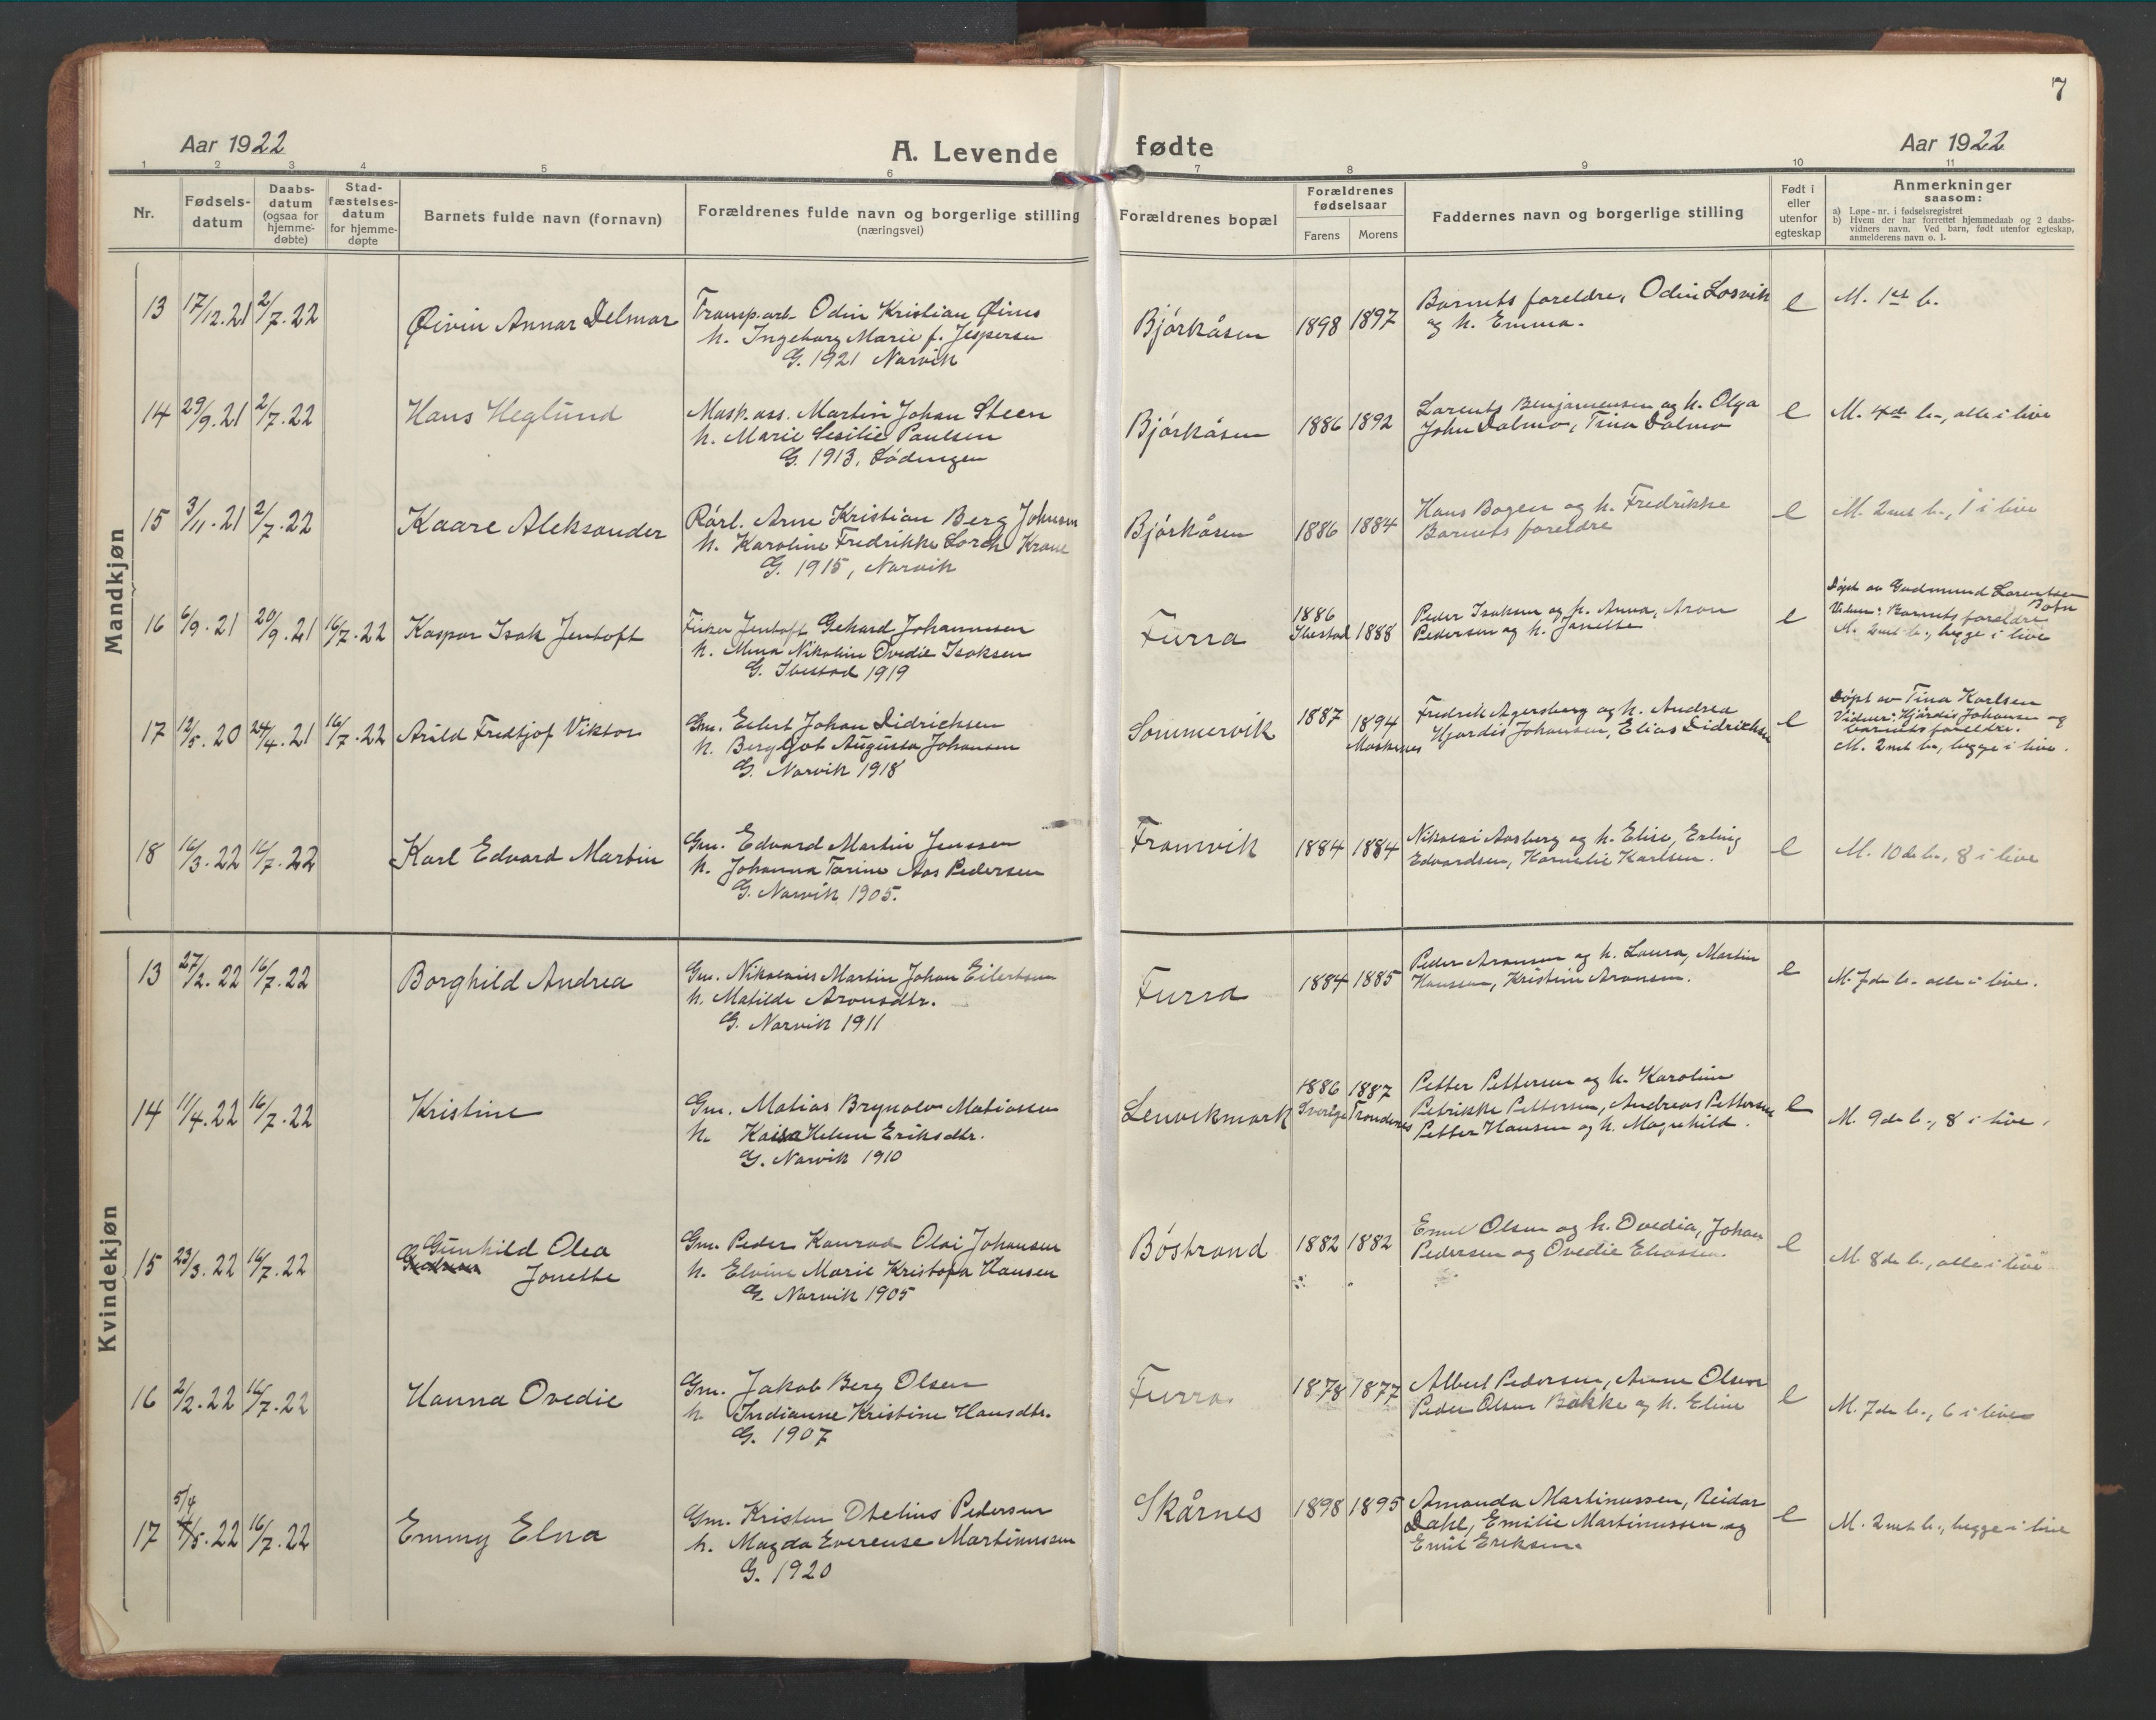 7
Aar 1922
A. Levende fødte
Aar 1922
1 2 3 4 5 6 7 8 9 10 11
Nr.
Fødsels-
datum
Daabs-
datum
(ogsaa for
hjemme-
døbte)
Stad-
fæstelses-
datum
for hjemme-
døpte
Barnets fulde navn (fornavn)
Forældrenes fulde navn og borgerlige stilling
(næringsvei)
Forældrenes bopæl
Forældrenes
fødselsaar
Farens
Morens
Faddernes navn og borgerlige stilling
Født i
eller
utenfor
egteskap
Anmerkninger
saasom:
a) Løpe-nr. i fødselsregistret
b) Hvem der har forrettet hjemmedaab og 2 daabs-
vidners navn. Ved barn, født utenfor egteskap,
anmelderens navn o. l.
Mandkjøn
13 17/12.21 2/7.22
Øivin Annar Delmar
Transp.arb. Odin Kristian Øines
h. Ingeborg Marie f. Jespersen
G. 1921 Narvik
Bjørkåsen 1898 1897
Barnets foreldre, Odin Losvik
og h. Emma.
e
M. 1st b.
14 29/9.21 2/7.22
Hans Heglund
Mask.ass. Martin Johan Steen
h. Marie Sesilie Paulsen
G. 1913, Lødingen
Bjørkåsen 1886 1892
Larents Benjaminsen og h. Olga
John Dalmo, Tina Dalmo
e
M. 4de b., alle i live
15 3/11.21 2/7.22
Kaare Aleksander
Rørl. Arne Kristian Berg Johnsen
h. Karoline Fredrikke Lorch Krane
G. 1915, Narvik
Bjørkåsen 1886 1884
Hans Bogen og h. Fredrikke
Barnets foreldre
e
M. 2net b., 1 i live
16 6/9.21 20/9.21 16/7.22
Kaspar Isak Jentoft
Fisker Jentoft Gehard Johannesen
h. Mina Nikoline Ovedie Isaksen
G. Ibestad 1919
Furra 1886 Ibestad 1888
Peder Isaksen og h. Anna, Aron
Pedersen og h. Janette
e
Døpt av Gudmund Larentsen
Botn
Vidner: Barnets foreldre
M. 2net b., begge i live
17 12/5.20 24/4.21 16/7.22
Arild Fredtjof Viktor
Gm. Eilert Johan Didrichsen
h. Bergljot Augusta Johansen
G. Narvik 1918
Sommervik 1887 1894
Moskenes
Fredrik Agersborg og h. Andrea
Hjørdis Johansen, Elias Didrichsen
e
Døpt av Tina Karlsen
Vidner: Hjørdis Johansen og
barnets foreldre.
M. 2net b., begge i live.
18 16/3.22 16/7.22
Karl Edvard Martin
Gm. Edvard Martin Jenssen
h. Johanna Tarine Aas Pedersen
G. Narvik 1905.
Framvik 1884 1884
Nikolai Aasberg og h. Elise, Erling
Edvardsen, Kornelie Karlsen.
e
M. 10de b., 8 i live
Kvindekjøn
13 27/2.22 16/7.22
Borghild Andrea
Gm. Nikolaies Martin Johan Eilertsen
h. Matilde Aronsdtr.
G. Narvik 1911
Furra 1884 1885
Peder Aronsen og h. Laura, Martin
Hanssen, Kristine Aronsen.
e
M. 7de b. alle i live.
14 11/4.22 16/7.22
Kristine
Gm. Matias Brynolv Matiassen
h. Kaisa Helene Eriksdtr.
G. Narvik 1910
Lenvikmark 1886 1887
Sverige Trondenes
Petter Pettersen og h. Karoline
Petrikke Pettersen, Andreas Pettersen
Petter Hansen og h. Magnhild.
e
M. 9de b., 8 i live.
15 23/3.22 16/7.22
Gunhild Olea
Jonette
Gm. Peder Konrad Olai Johansen
h. Elvine Marie Kristofa Hansen
G. Narvik 1905
Bøstrand 1882 1882
Emil Olsen og h. Ovedia, Johan
Pedersen og Ovedie Eliassen.
e
M. 8de b., alle i live
16 2/2.22 16/7.22
Hanna Ovedie
Gm. Jakob Berg Olsen
h. Indianne Kristine Hansdtr.
G. 1907
Furra. 1878 1877
Albert Pedersen, Anne Olsen
Peder Olsen Bakke og h. Eline
e
M. 7de b., 6 i live
17 5/4 5.22 16/7.22
Emmy Elna
Gm. Kristen Otelius Pedersen
h. Magda Evereuse Martinussen
G. 1920
Skårnes 1898 1895
Amanda Martinussen, Reidar
Dahl, Emilie Martinussen og
Emil Eriksen.
e
M. 2net b., begge i live